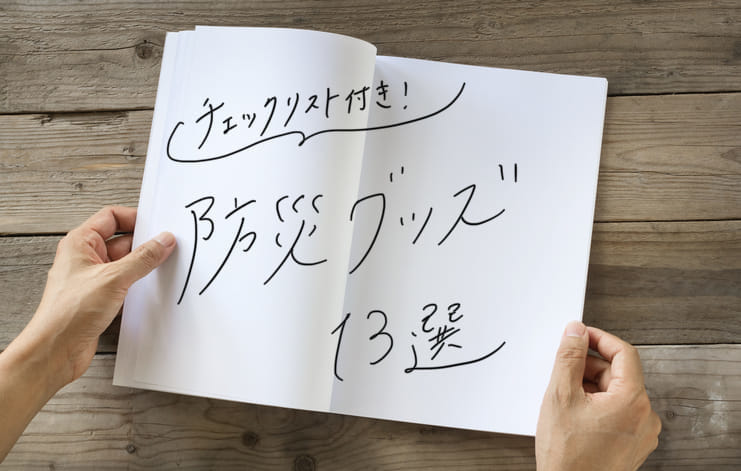 チェックリスト付き!
防災グッズ
13選